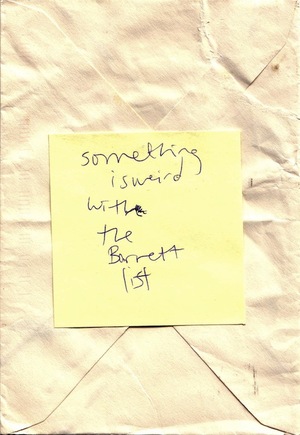 something
is weird
with
the
Barrett
list